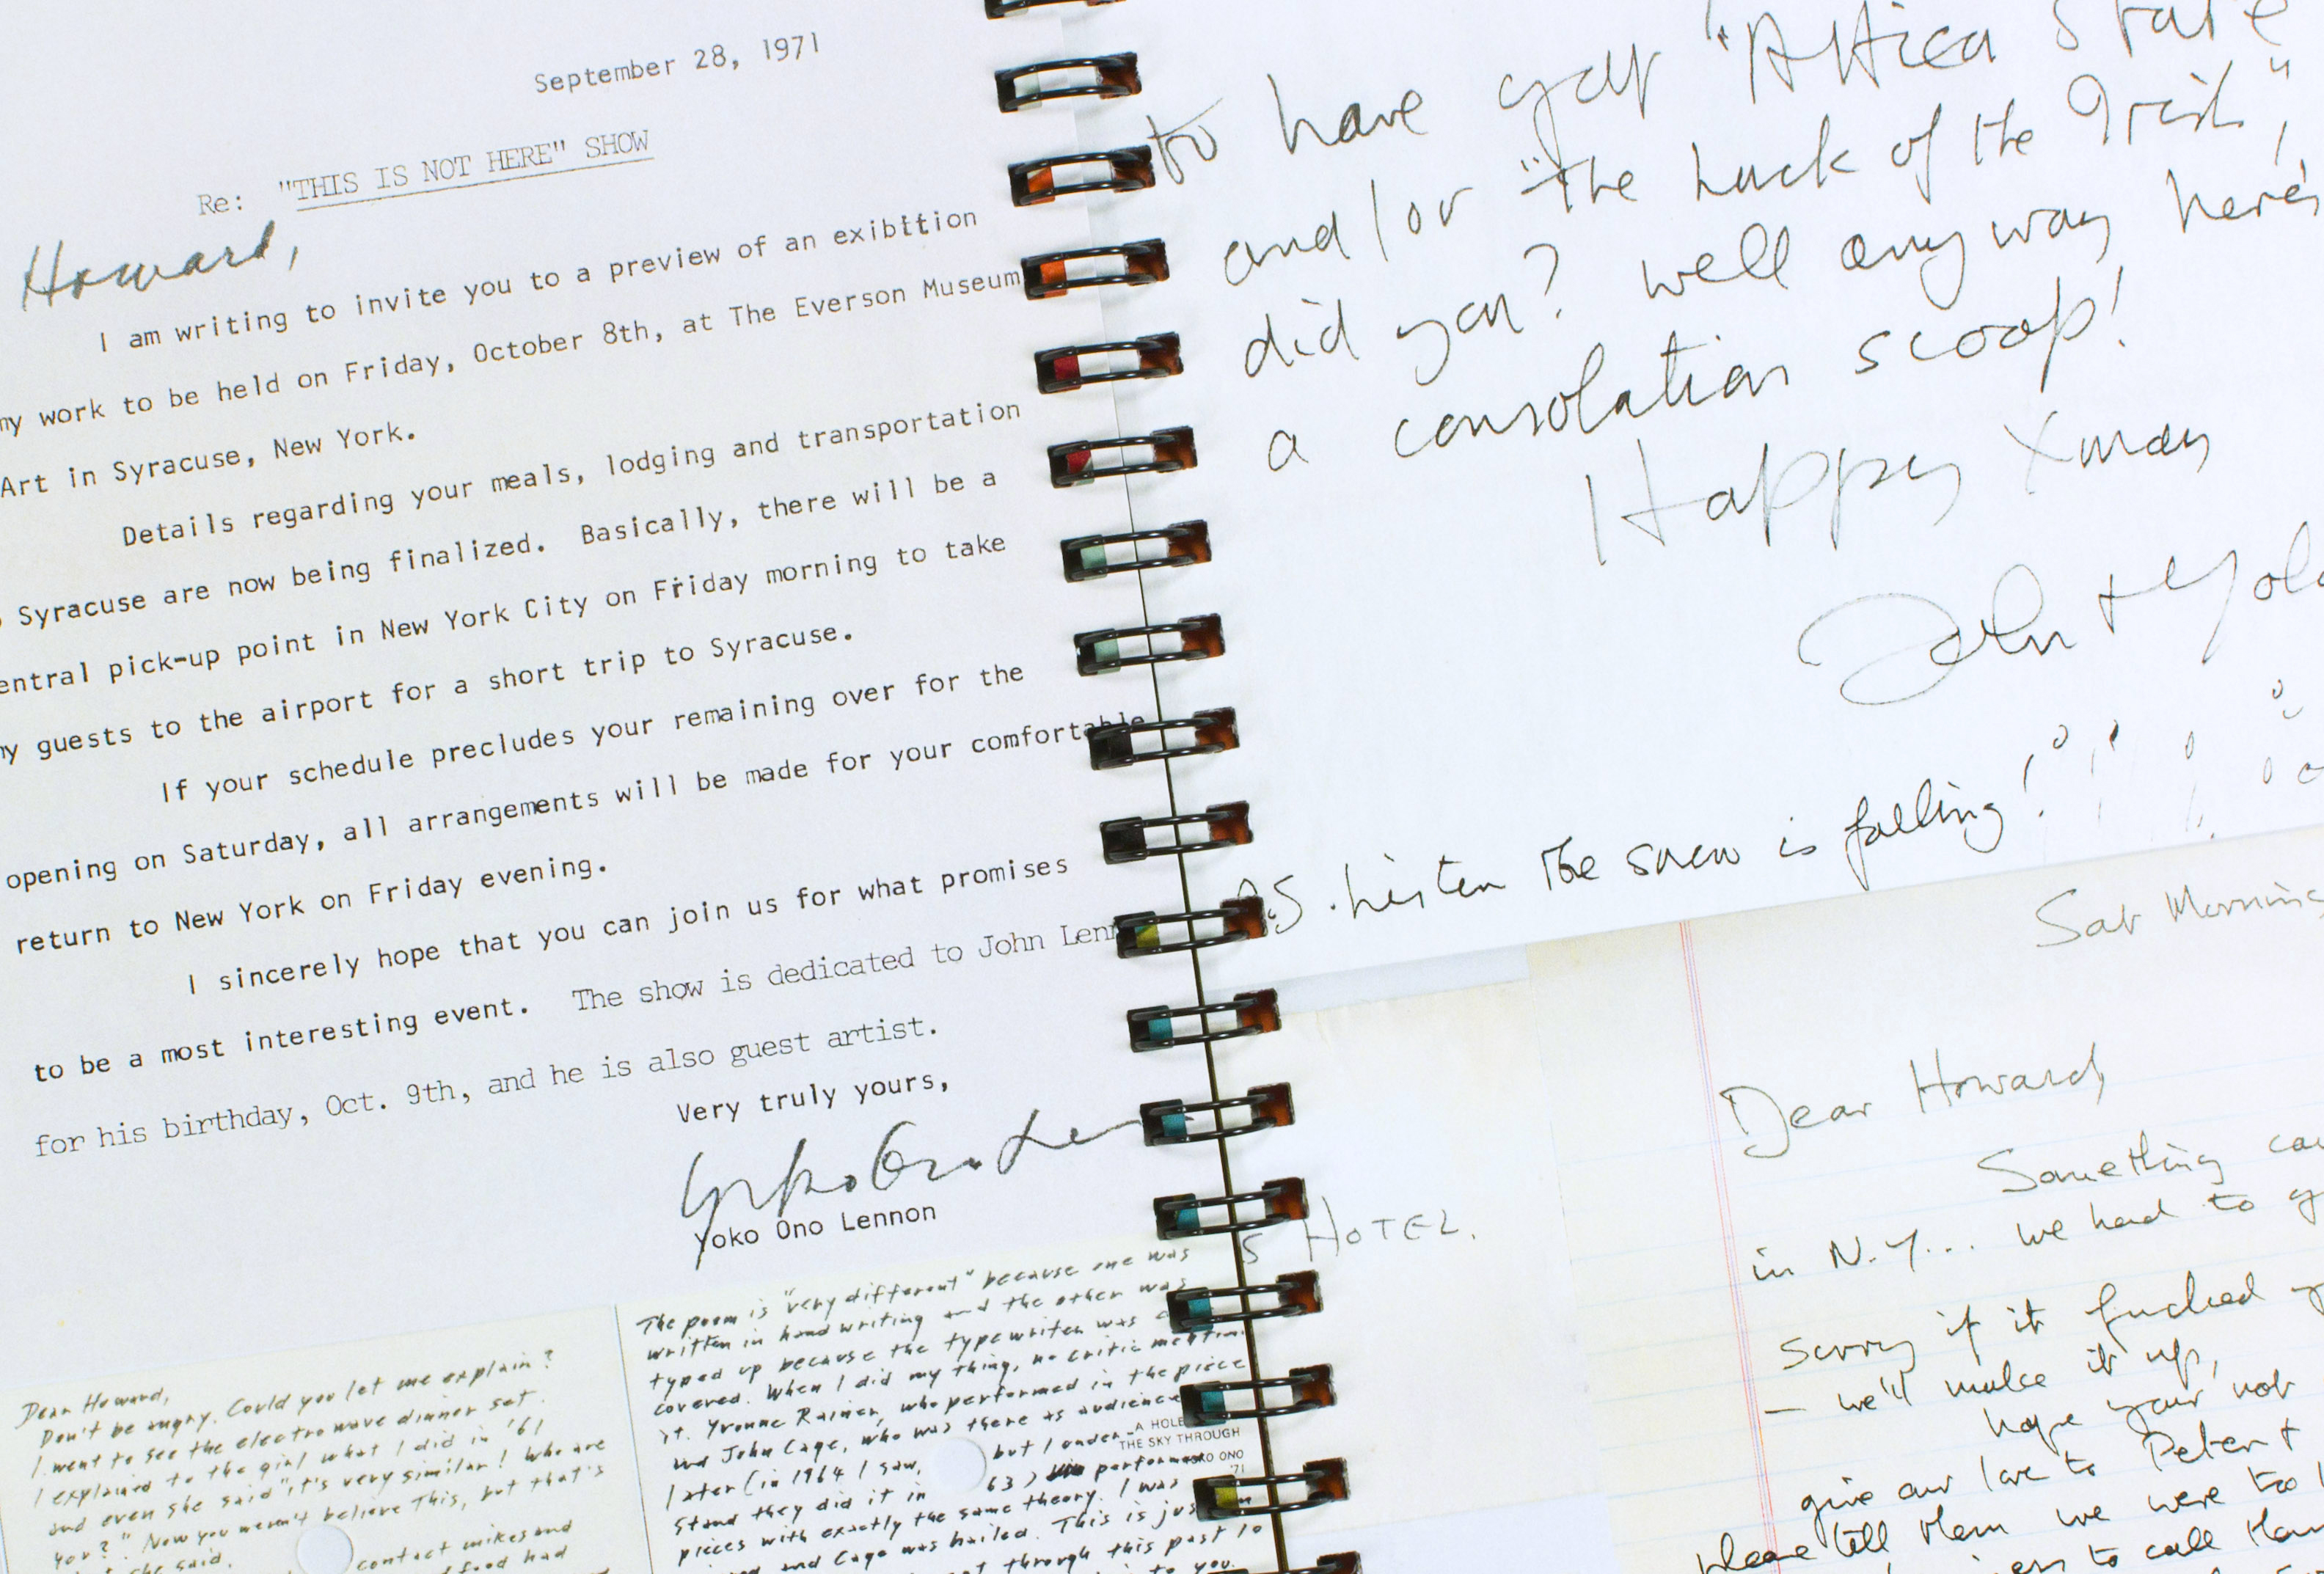 September 28, 1971
Re: "THIS IS NOT HERE" SHOW
Howard,
I am writing to invite you to a preview of an exibition
my work to be held on Friday, October 8th, at The Everson Museum
Art in Syracuse, New York.
Details regarding your meals, lodging and transportation
Syracuse are now being finalized. Basically, there will be a
entral pick-up point in New York City on Friday morning to take
my guests to the airport for a short trip to Syracuse.
If your schedule precludes your remaining over for the
opening on Saturday, all arrangements will be made for your comfortable
return to New York on Friday evening.
I sincerely hope that you can join us for what promises
to be a most interesting event. The show is dedicated to John Lenn
for his birthday, Oct. 9th, and he is also guest artist.
Very truly yours,
Yoko Ono Len
Yoko Ono Lennon
Dear Howard,
Don't be angry. Could you let me explain?
I went to see the electro wave dinner set.
I explained to the girl what I did in '61
and even she said "it's very similar! Who are
you?" Now you weren't believe this, but that's
she said.
contact mikes and
food had
The poem is "very different" because one was
written in handwriting and the other was
typed up because the typewriter was
covered. When I did my thing, no critic mention
it. Yvonne Rainer, who performed in the piece
and John Cage, who was there as audience
later (in 1964 I saw, but I under-
stand they did it in 63) performa
pieces with exactly the same theory. I was
and Cage was hailed. This is jus
through this past to
to you.
A HOLE
THE SKY THROUGH
KO ONO
'71
to have got "Attica State
and/or "the Luck of the Irish",
did you? well anyway here's
a consolation scoop!
Happy Xmas
John + Yoko
P.S. Listen the snow is falling!
S HOTEL.
Sat Morning
Dear Howard,
Something ca
in N.Y... we had to g
sorry if it fucked
— we'll make it up,
hope your not
give our love to Peter +
please tell them we were too
to call them